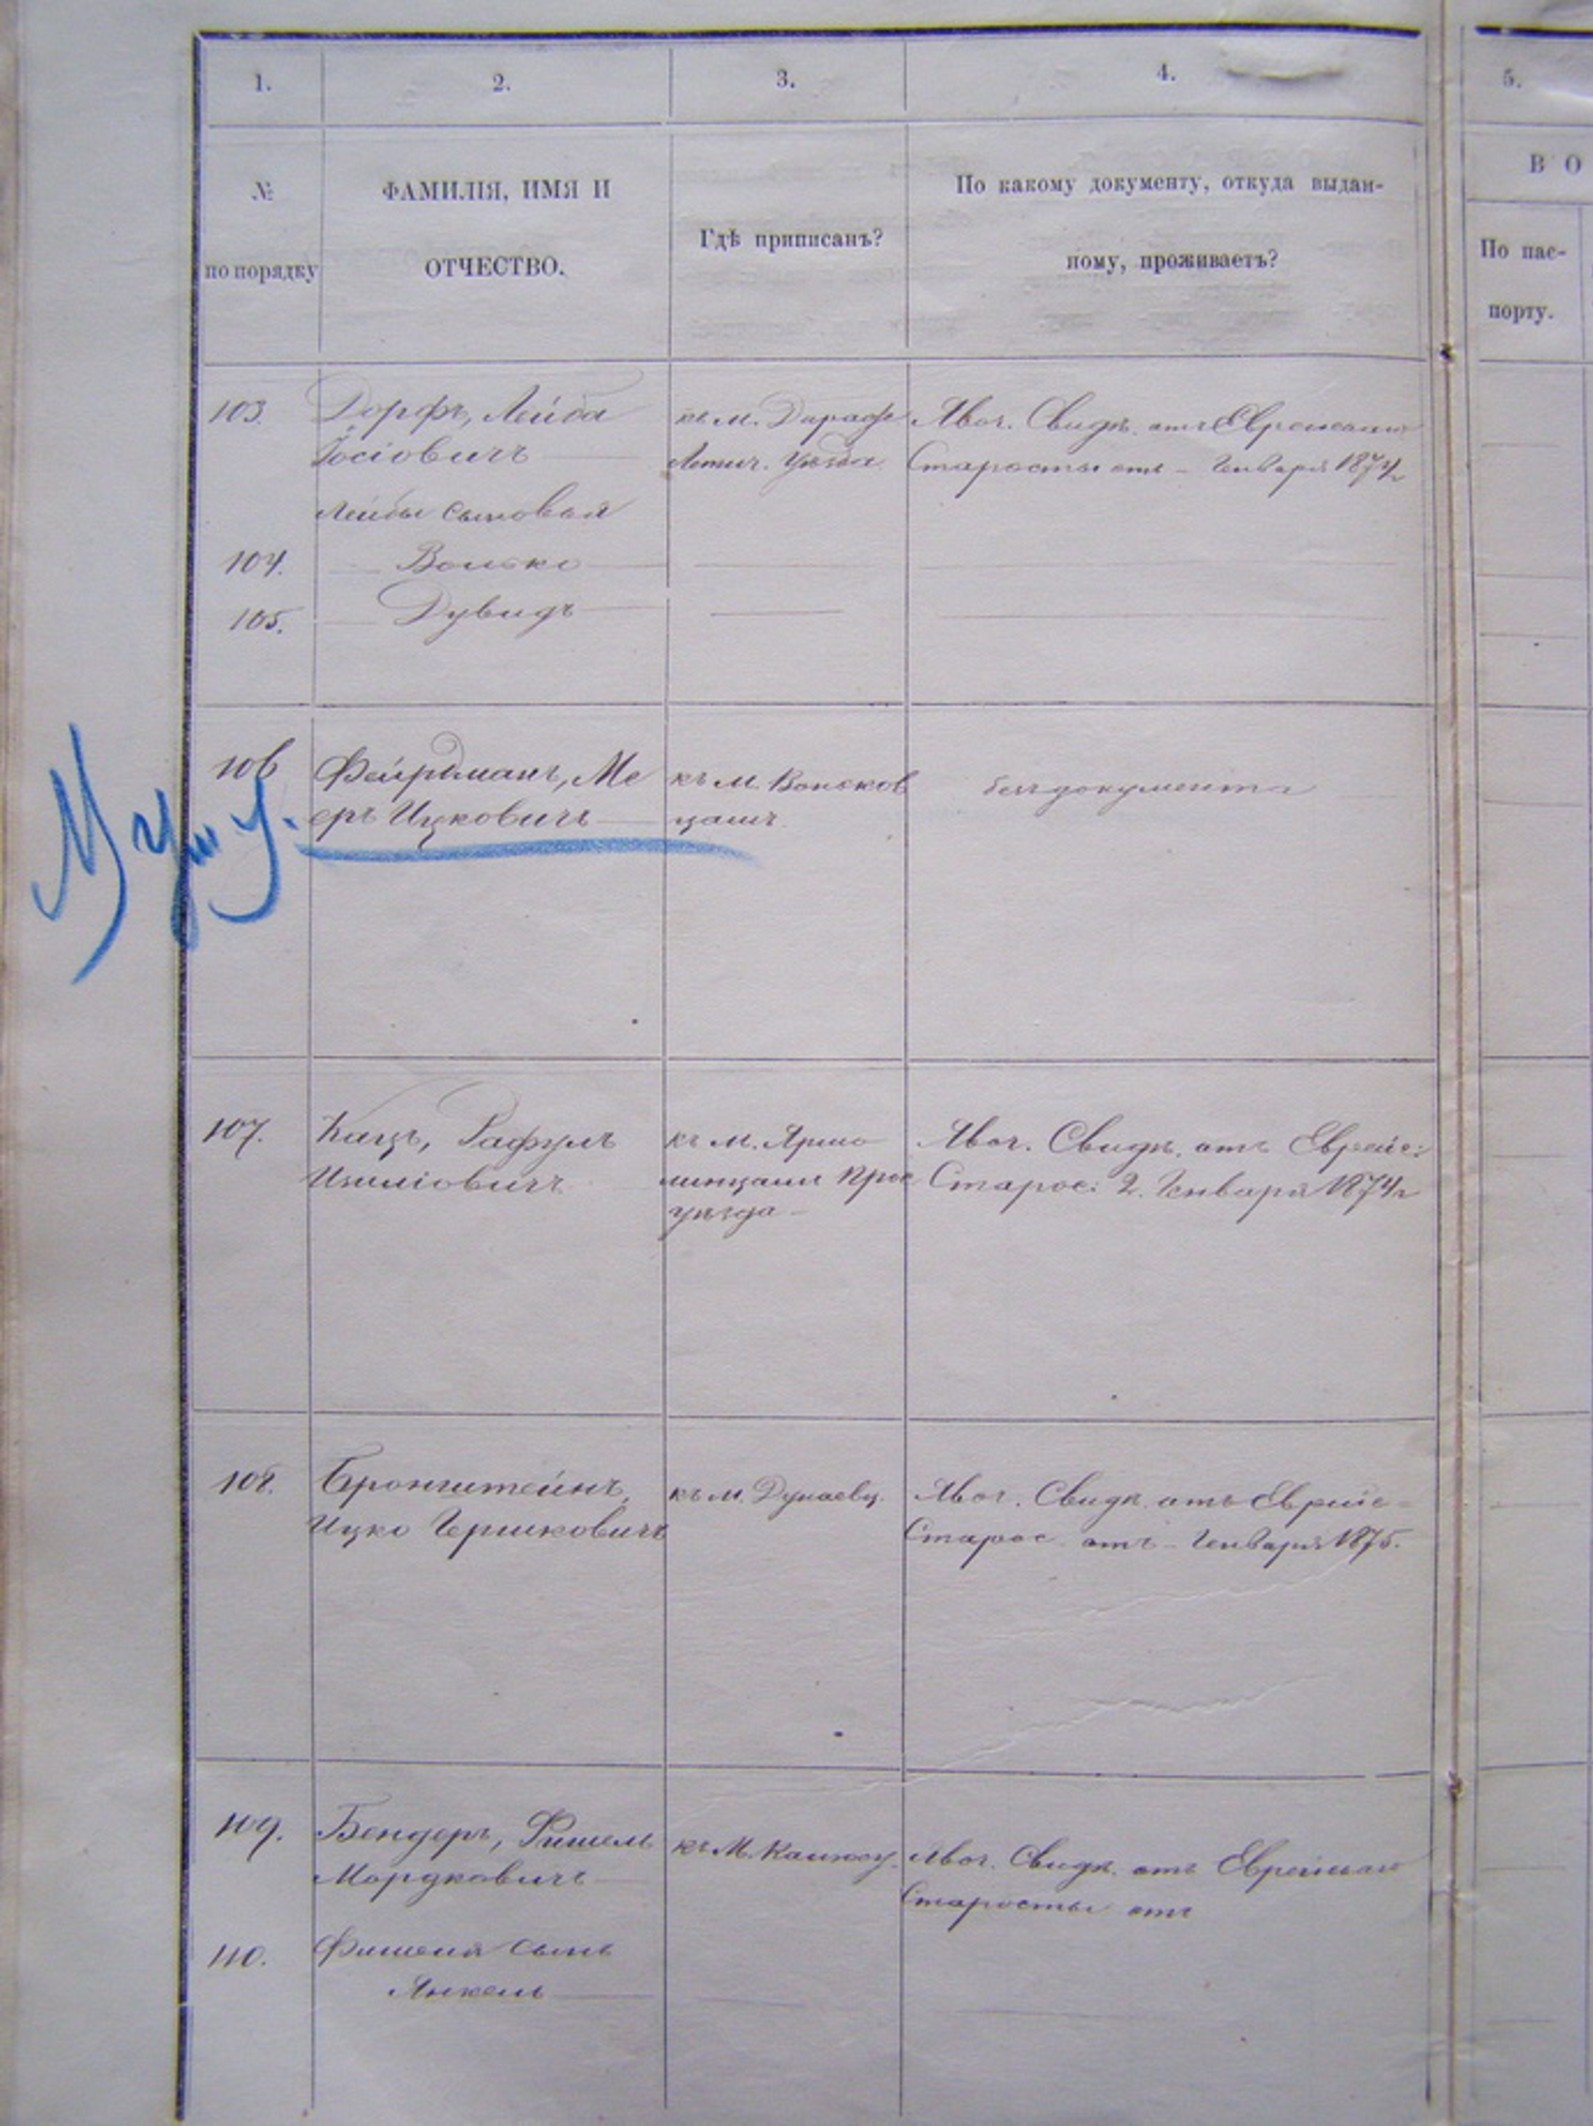 1.
2.
3.
4.
5.
№
по порядку
ФАМИЛІЯ, ИМЯ И
ОТЧЕСТВО.
Гдѣ приписанъ?
По какому документу, откуда выдан-
ному, проживаетъ?
В О
По пас-
порту.
103.
Дорфъ, Лейба
Іосіовичъ
къ м. Дараж
Летич. уѣзда
Явоч. Свидѣ. отъ Еврейскаго
Старосты отъ - Генваря 1874 г
Лейбы сыновья
104.
Волько
105.
Дувидъ
Мушу.
106
Ме
еръ Ицковичъ
къ м. Воньков
цамъ
безъ документа
107.
Кацъ, Рафулъ
къ м. Ярмо
линцами Прос
уѣзда
Явоч. Свидѣ. отъ Еврейс:
Старос: 2. Генваря 1874 г
108.
Бронштейнъ,
Ицко Гершковичъ
къ м. Дунаевц.
Явоч. Свидѣ. отъ Еврейс-
Старос. отъ - Генваря 1875.
109.
Бендеръ, Фишель
Мордковичъ
къ М.
Явоч. Свидѣ. отъ Еврейскаго
Старосты отъ
110.
Фишеля сынъ
Янкель